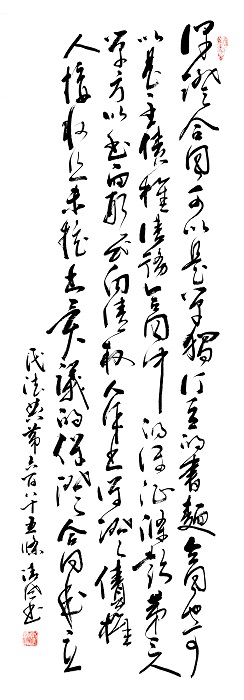 保證合同可以是單獨订立的書麵合同也可
以是主債權債務合同中的保证條款第三人
單方以书面形式向債权人作出保證債權
人接收且未提出異議的保證合同成立
民法典第六百八十五條